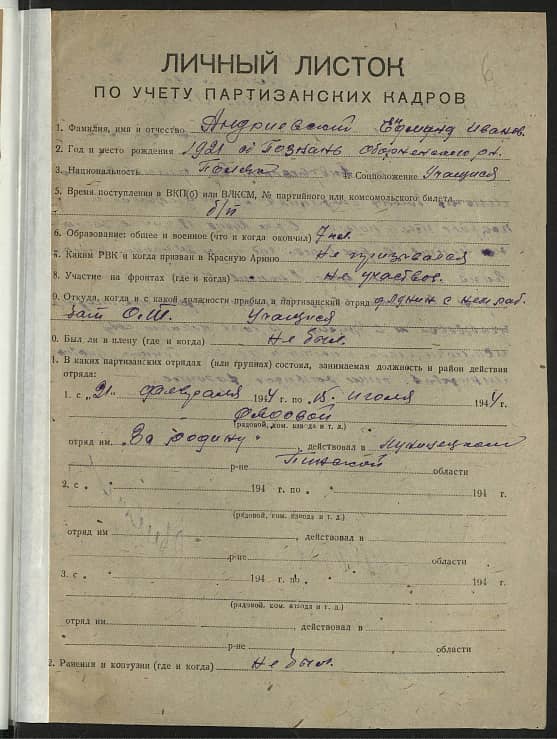 6
ЛИЧНЫЙ ЛИСТОК
ПО УЧЕТУ ПАРТИЗАНСКИХ КАДРОВ
1. Фамилия, имя и отчество Андриевский Едмунд Иванов.
2. Год и место рождения 1921 Познань
3. Национальность Поляк Соцположение Учащийся
5. Время поступления в ВКП(б) или ВЛКСМ, № партийного или комсомольского билета
б/п
6. Образование: общее и военное (что и когда окончил) 7 кл.
7. Каким РВК и когда призван в Красную Армию Не призывался
8. Участие на фронтах (где и когда) Не участвов.
9. Откуда, когда и с какой должности прибыл в партизанский отряд
Учащийся
0. Был ли в плену (где и когда) Не был.
1. В каких партизанских отрядах (или группах) состоял, занимаемая должность и район действия
отряда:
1. с „21" февраля 1944 г. по 15. июля 1944 г.
рядовой
(рядовой, ком. взвода и т. д.)
отряд им. „За родину", действовал в Лунинецком
р-не Пинской области
2. с 194 г. по 194 г.
(рядовой, ком. взвода и т. д.)
отряд им. , действовал в
р-не области
3. с 194 г. по 194 г.
(рядовой, ком. взвода и т. д.)
отряд им. , действовал в
р-не области
2. Ранения и контузии (где и когда) Не был.